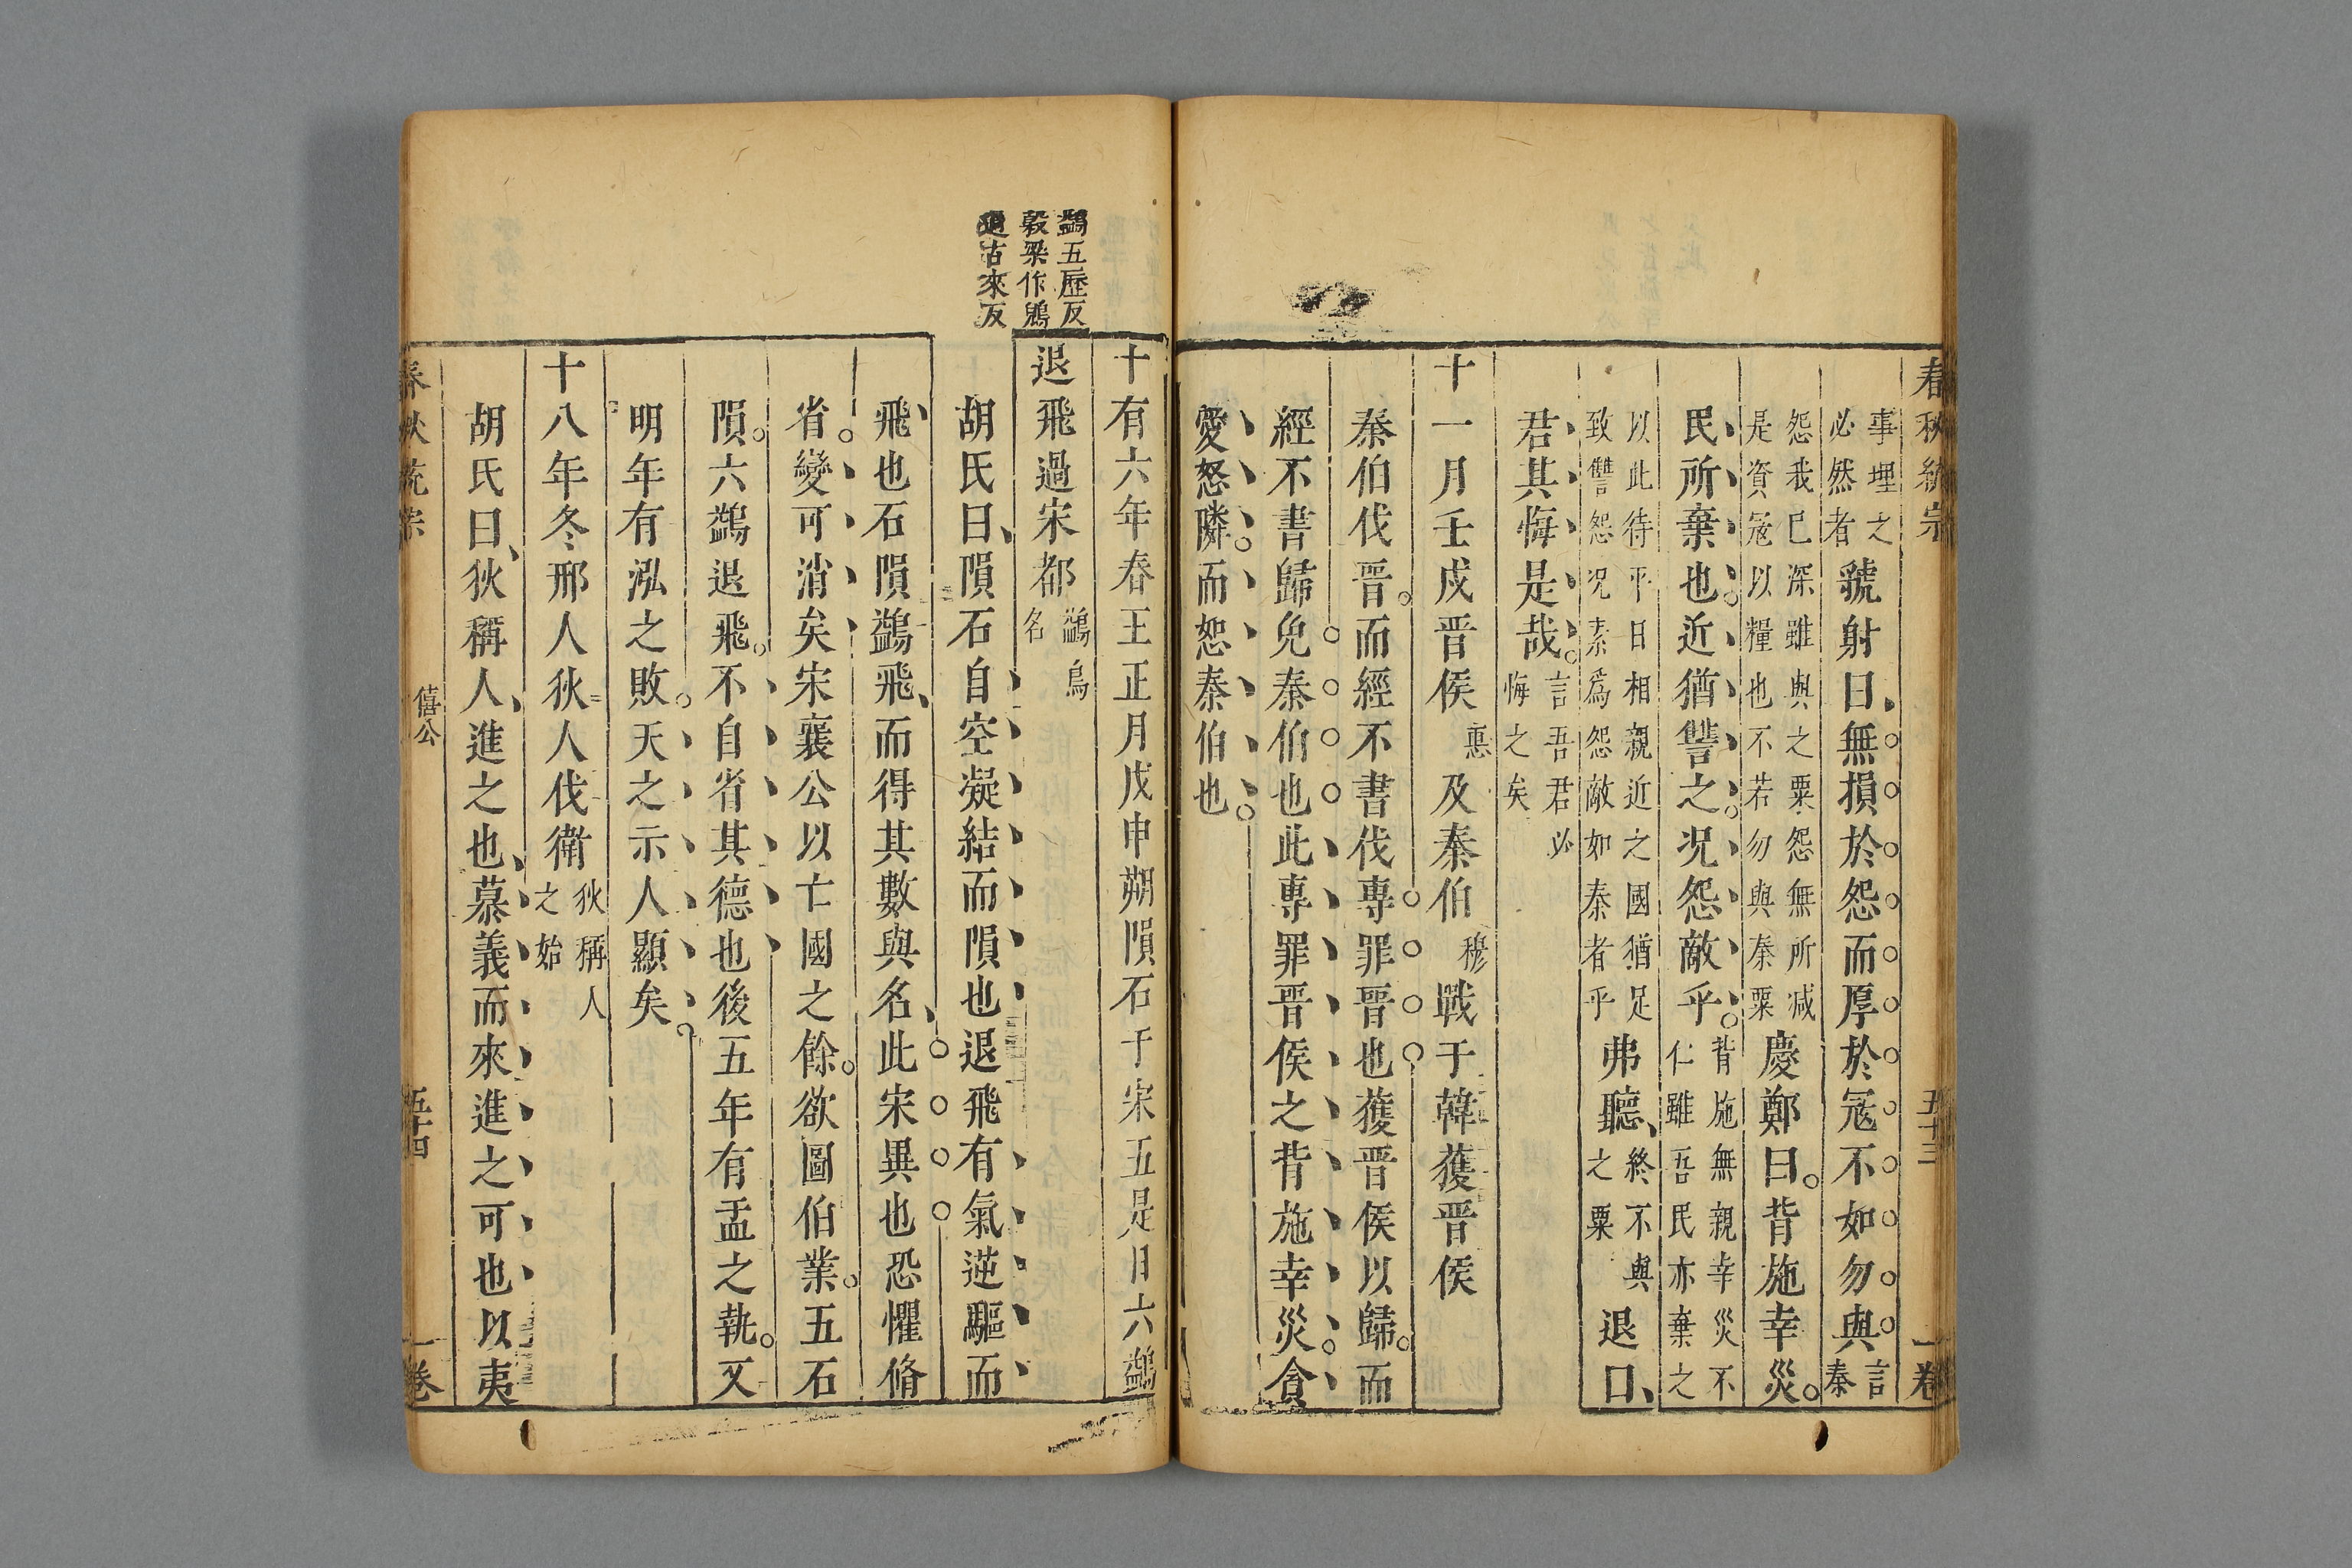 春秋統宗 五十三 一卷
事理之必然者虢射曰無損於怨而厚於冦不如勿與言秦
怨我已深雖與之粟怨無所减是資冦以糧也不若勿與秦粟慶鄭曰。背施幸災。
民所棄也。近猶讐之。况怨敵乎。背施無親幸災不仁雖吾民亦棄之
以此待平日相親近之國猶足致讐怨况素爲怨敵如秦者乎弗聽、終不與之粟退曰、
君其悔是哉。言吾君必悔之矣
十一月壬戌晋侯惠及秦伯穆戰于韓獲晋侯
秦伯伐晋。而經不書伐專罪晋也獲晋侯以歸。而
經不書歸免秦伯也此專罪晋侯之背施幸災。貪
愛怒隣。而恕秦伯也。
鷁五歷反
穀梁作鶂
退古來反
十有六年春王正月戊申朔隕石于宋五是月六鷁
退飛過宋都鷁鳥名
胡氏曰、隕石自空凝結而隕也退飛有氣逆驅而
飛、也石隕鷁飛、而得其數與名、此宋異也恐懼脩
省。變可消矣宋襄公以亡國之餘。欲圖伯業。五石
隕。六鷁退飛。不自省其德也後五年有盂之執。又
明年有泓之敗。天之示人顯矣。
十八年冬邢人狄人伐衛狄稱人之始
胡氏曰、狄稱人、進之也、慕義而來進之可也以夷
春秋統宗 僖公 五十四 一卷